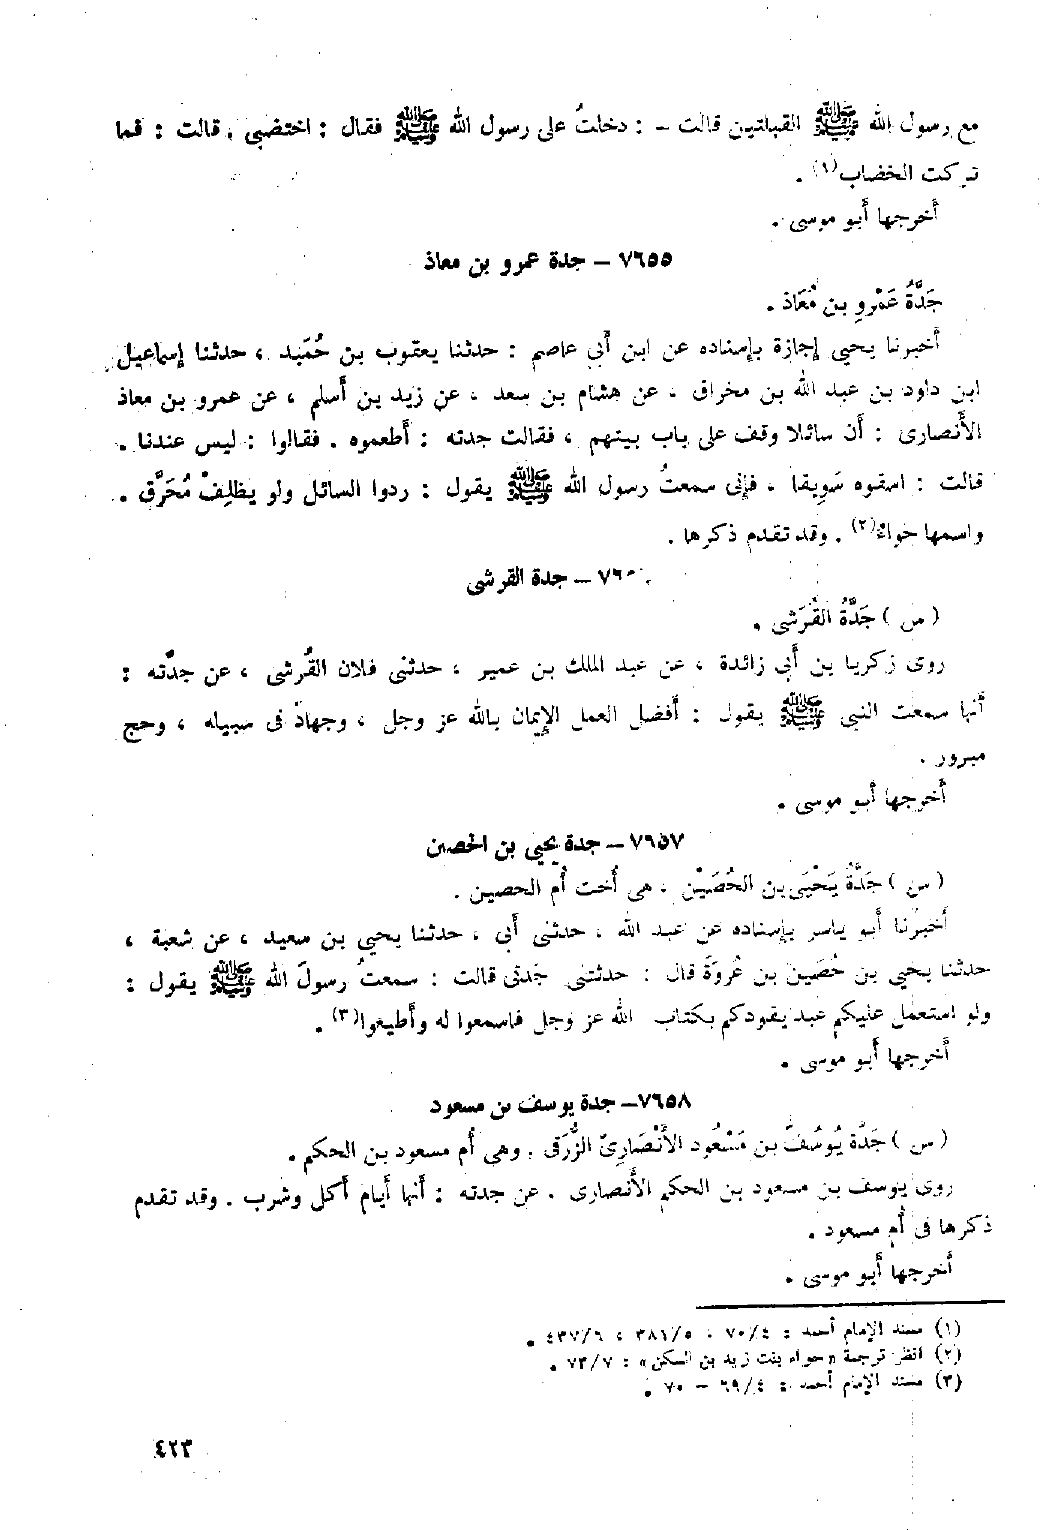 مع رسول الله ﷺ القبلتين قالت - : دخلتُ على رسول الله ﷺ فقال : اختضبى . قالت : فما
تركت الخضاب(١) .
أخرجها أبو موسى .
٧٦٥٥ – جدة عمرو بن معاذ
جَدَّةُ عَمْرو بن مُعَاذ .
أخبرنا يحيى إجازة بإسناده عن ابن أبي عاصم : حدثنا يعقوب بن حُمَيد ، حدثنا إسماعيل
ابن داود بن عبد الله بن مخراق ، عن هشام بن سعد ، عن زيد بن أسلم ، عن عمرو بن معاذ
الأنصارى : أن سائلا وقف على باب بيتهم ، فقالت جدته : أطعموه . فقالوا : ليس عندنا .
قالت : اسقوه سَوِيقا ، فإنى سمعتُ رسول الله ﷺ يقول : ردوا السائل ولو بظِلِفْ مُحَرَّق .
واسمها حواءُ(٢) . وقد تقدم ذكرها .
٧٦٥ – جدة القرشى
( س ) جَدَّةُ القُرَشى .
روى زكريا بن أبى زائدة ، عن عبد الملك بن عمير ، حدثنى فلان القُرشى ، عن جدّته :
أنها سمعت النبى ﷺ يقول : أفضل العمل الإيمان بالله عز وجل ، وجهادٌ فى سبيله ، وحج
مبرور .
أخرجها أبو موسى .
٧٦٥٧ – جدة يحيى بن الحصين
( س ) جَدَّةُ يَحْيَى بن الحُصَيْن ، هى أُخت أُم الحصين .
أخبرنا أبو ياسر بإسناده عن عبد الله ، حدثنى أبى ، حدثنا يحيى بن سعيد ، عن شعبة ،
حدثنا يحيى بن حُصَين بن عُروَةَ قال : حدثتنى جَدتى قالت : سمعتُ رسولَ الله ﷺ يقول :
ولو استعمل عليكم عبد يقودكم بكتاب الله عز وجل فاسمعوا له وأطيعوا(٣) .
أخرجها أبو موسى .
٧٦٥٨ – جدة يوسف بن مسعود
( س ) جَدَّة يُوسُفَ بن مَسْعُود الأنْصَارِىّ الزُّرَقى . وهى أم مسعود بن الحكم .
روى يوسف بن مسعود بن الحكم الأنصارى . عن جدته : أنها أيام أكل وشرب . وقد تقدم
ذكرها فى أُم مسعود .
أخرجها أبو موسى .
(١) مسند الإمام أحمد : ٧٠/٤ ، ٣٨١/٥ ، ٤٣٧/٦ .
(٢) انظر ترجمة «حواء بنت زيد بن السكن» : ٧٣/٧ .
(٣) مسند الإمام أحمد : ٦٩/٤ – ٧٠ .
٤٢٣